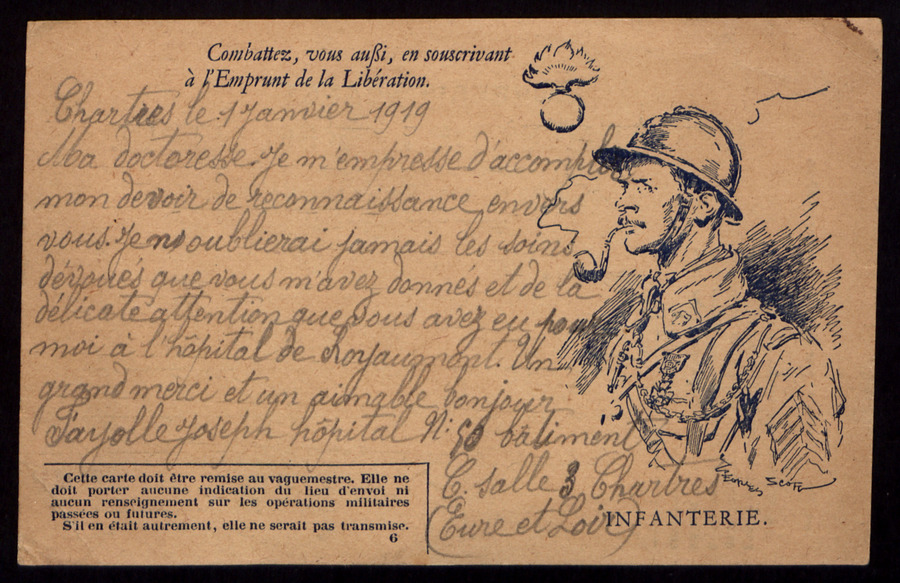 Combattez, vous außi, en souscrivant
à l'Emprunt de la Libération.
5
Chartres le 1 Janvier 1919
Ma doctoresse. Je m'empresse d'accomplir
mon devoir de reconnaissance envers
vous. Je n'oublierai jamais les soins
dévoués que vous m'avez donnés et de la
délicate attention que vous avez eu pour
moi à l'hôpital de Royaumont. Un
grand merci et un aimable bonjour
Fayolle Joseph hôpital N: bâtiment
C. salle 3 Chartres
(Eure et Loir)
GEORGES SCOTT
INFANTERIE.
Cette carte doit être remise au vaguemestre. Elle ne
doit porter aucune indication du lieu d'envoi ni
aucun renseignement sur les opérations militaires
passées ou futures.
S'il en était autrement, elle ne serait pas transmise.
6